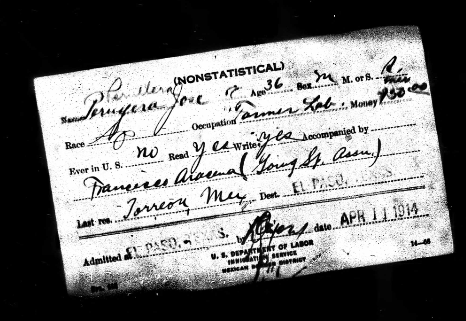 (NONSTATISTICAL)
Name Peruyera Jose Age 36 Sex M M. or S.
Race Occupation Farmer Lab. Money $50.00
Ever in U. S. no Read yes Write yes Accompanied by
Francisco (Long St. Assn.)
Last res. Torreon, Mex Dest. EL PASO, TEXAS
Admitted at EL PASO, TEXAS. by date APR 11 1914
U. S. DEPARTMENT OF LABOR
IMMIGRATION SERVICE
MEXICAN BORDER DISTRICT